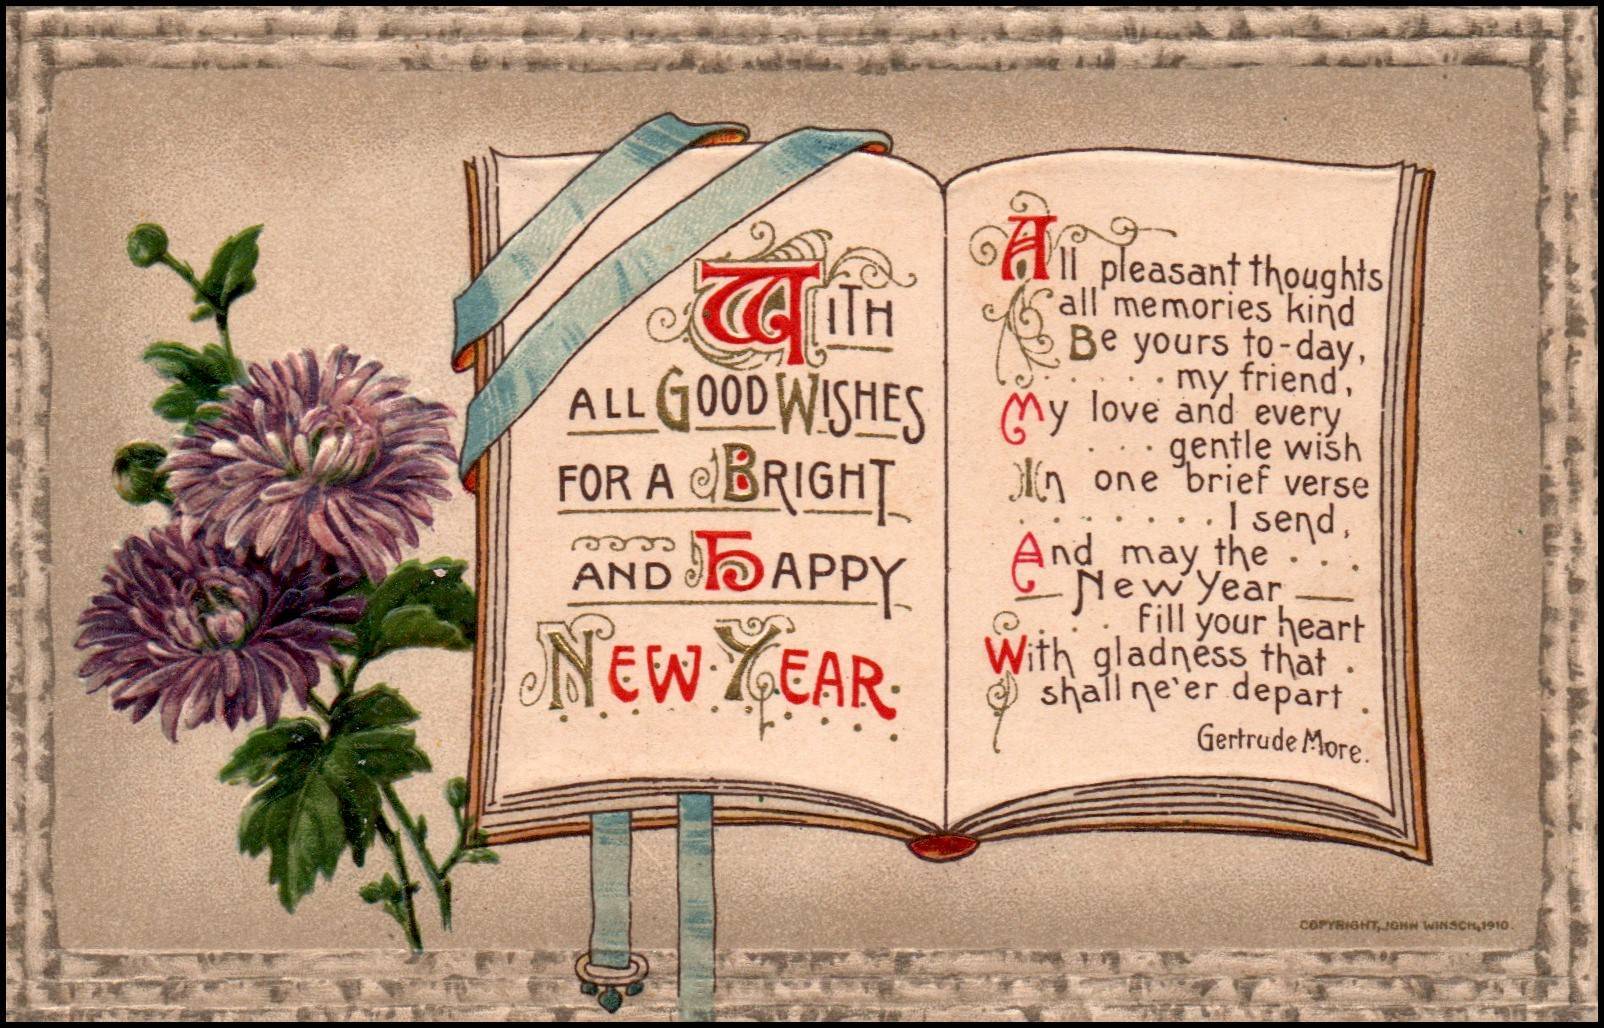 With
all Good Wishes
for a Bright
and Happy
New Year.
All pleasant thoughts
all memories kind
Be yours to-day,
. . . . . . my friend,
My love and every
. . . gentle wish
In one brief verse
. . . . . . . . I send,
And may the . . .
— New Year —
. . . fill your heart
With gladness that .
shall ne'er depart .
Gertrude More.
COPYRIGHT, JOHN WINSCH, 1910.